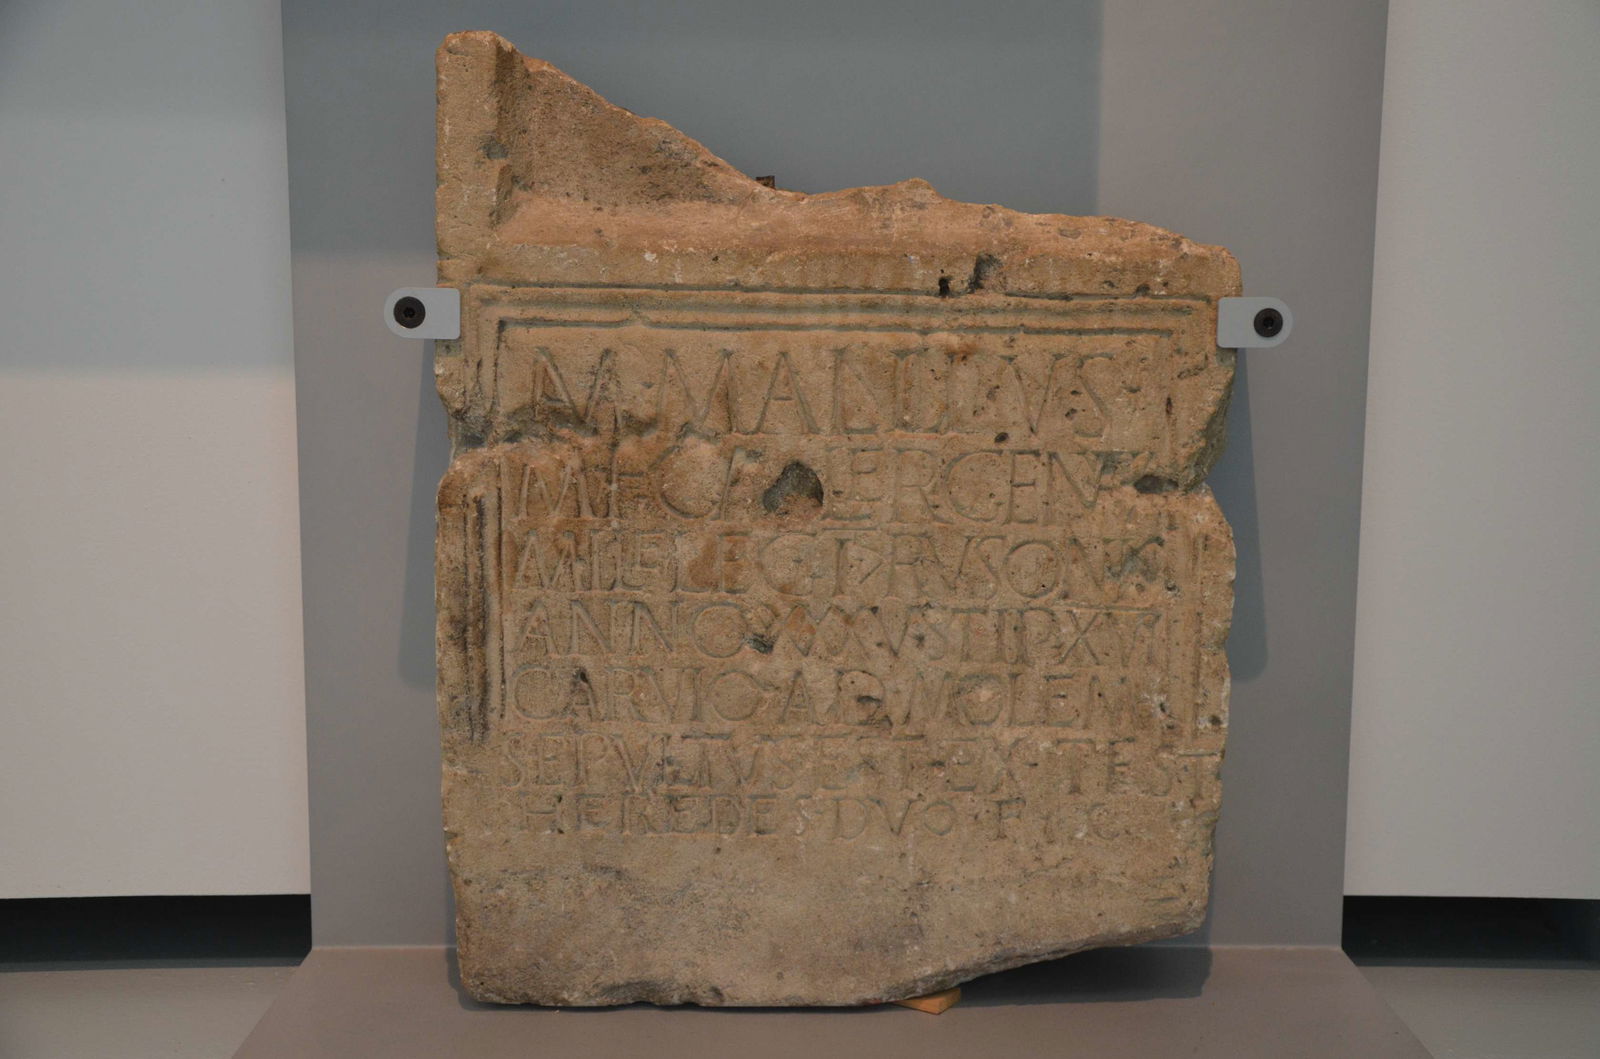 M MALLIVS
M F GALERGENV
MILES LEG I RVSONIS
ANNO XXXV STIP XVI
CARVIO AD MOLEM
SEPVLTVS EST EX TEST
HEREDES DVO F C